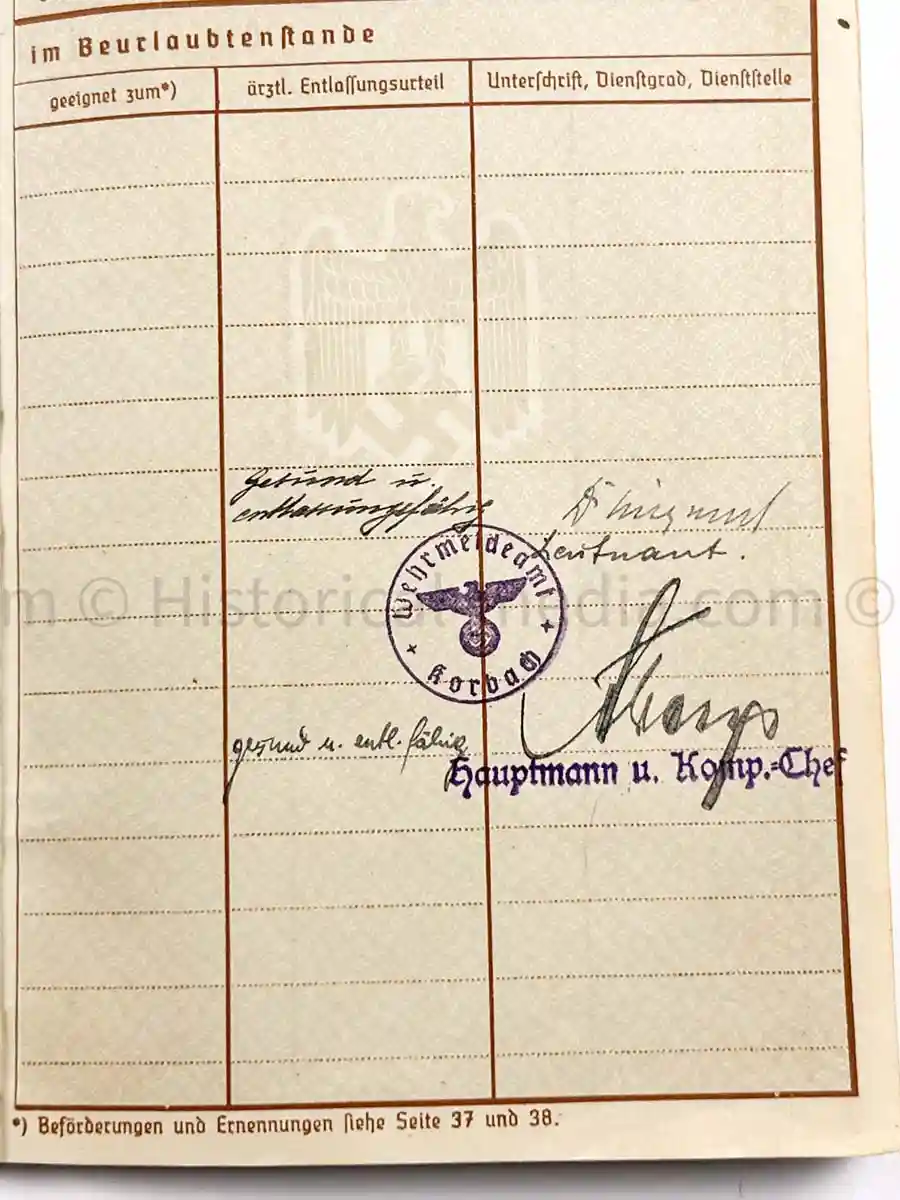 im Beurlaubtenstande
geeignet zum*)
ärztl. Entlassungsurteil
Unterschrift, Dienstgrad, Dienststelle
Gesund u.
entlassungsfähig
Leutnant.
Wehrmeldeamt
Korbach
m © Historical-media.com ©
gesund u. entl. fähig
Hauptmann u. Komp.=Chef
*) Beförderungen und Ernennungen siehe Seite 37 und 38.